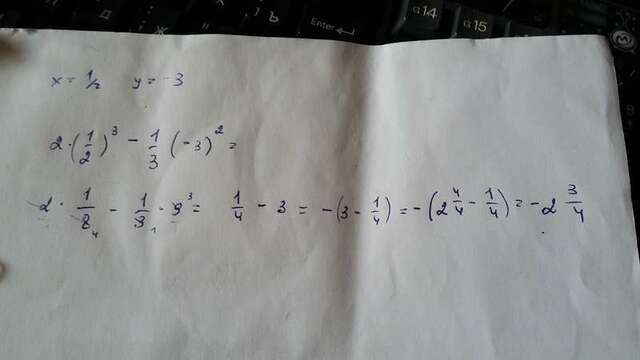 Enter
Ъ
G14
G15
M
x = 1/2 y = -3
2·(1/2)³ - 1/3 (-3)² =
2 · 1/8 4 - 1/3 1 · 9 3 = 1/4 - 3 = -(3 - 1/4) = -(2 4/4 - 1/4) = -2 3/4